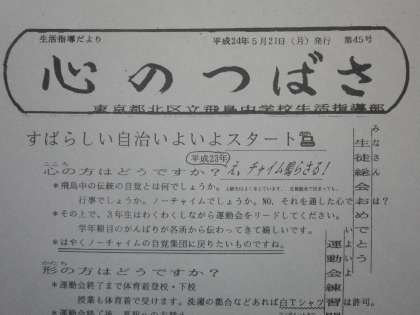 生活指導だより
平成24年5月21日（月）発行 第45号
心のつばさ
東京都北区立飛鳥中学校生活指導部
すばらしい自治いよいよスタート
みなさん
生徒総会おめでとう
いよいよ
運動会練習開
平成23年
こころ
心の方はどうですか？え、チャイム鳴らさる!
＊飛鳥中の伝統の自覚とは何でしょうか。
行事でしょうか。ノーチャイムでしょうか。NO、それを通した心では？
＊その上で、３年生はわくわくしながら運動会をリードしてください。
学年種目のがんばりが各済から伝わってきて嬉しいです。
＊はやくノーチャイムの自覚集団に戻りたいものですね。
かたち
形の方はどうですか？
＊運動会終了まで体育着登校・下校
授業も体育着で受けます。洗濯の都合などあれば白Tシャツは許可。